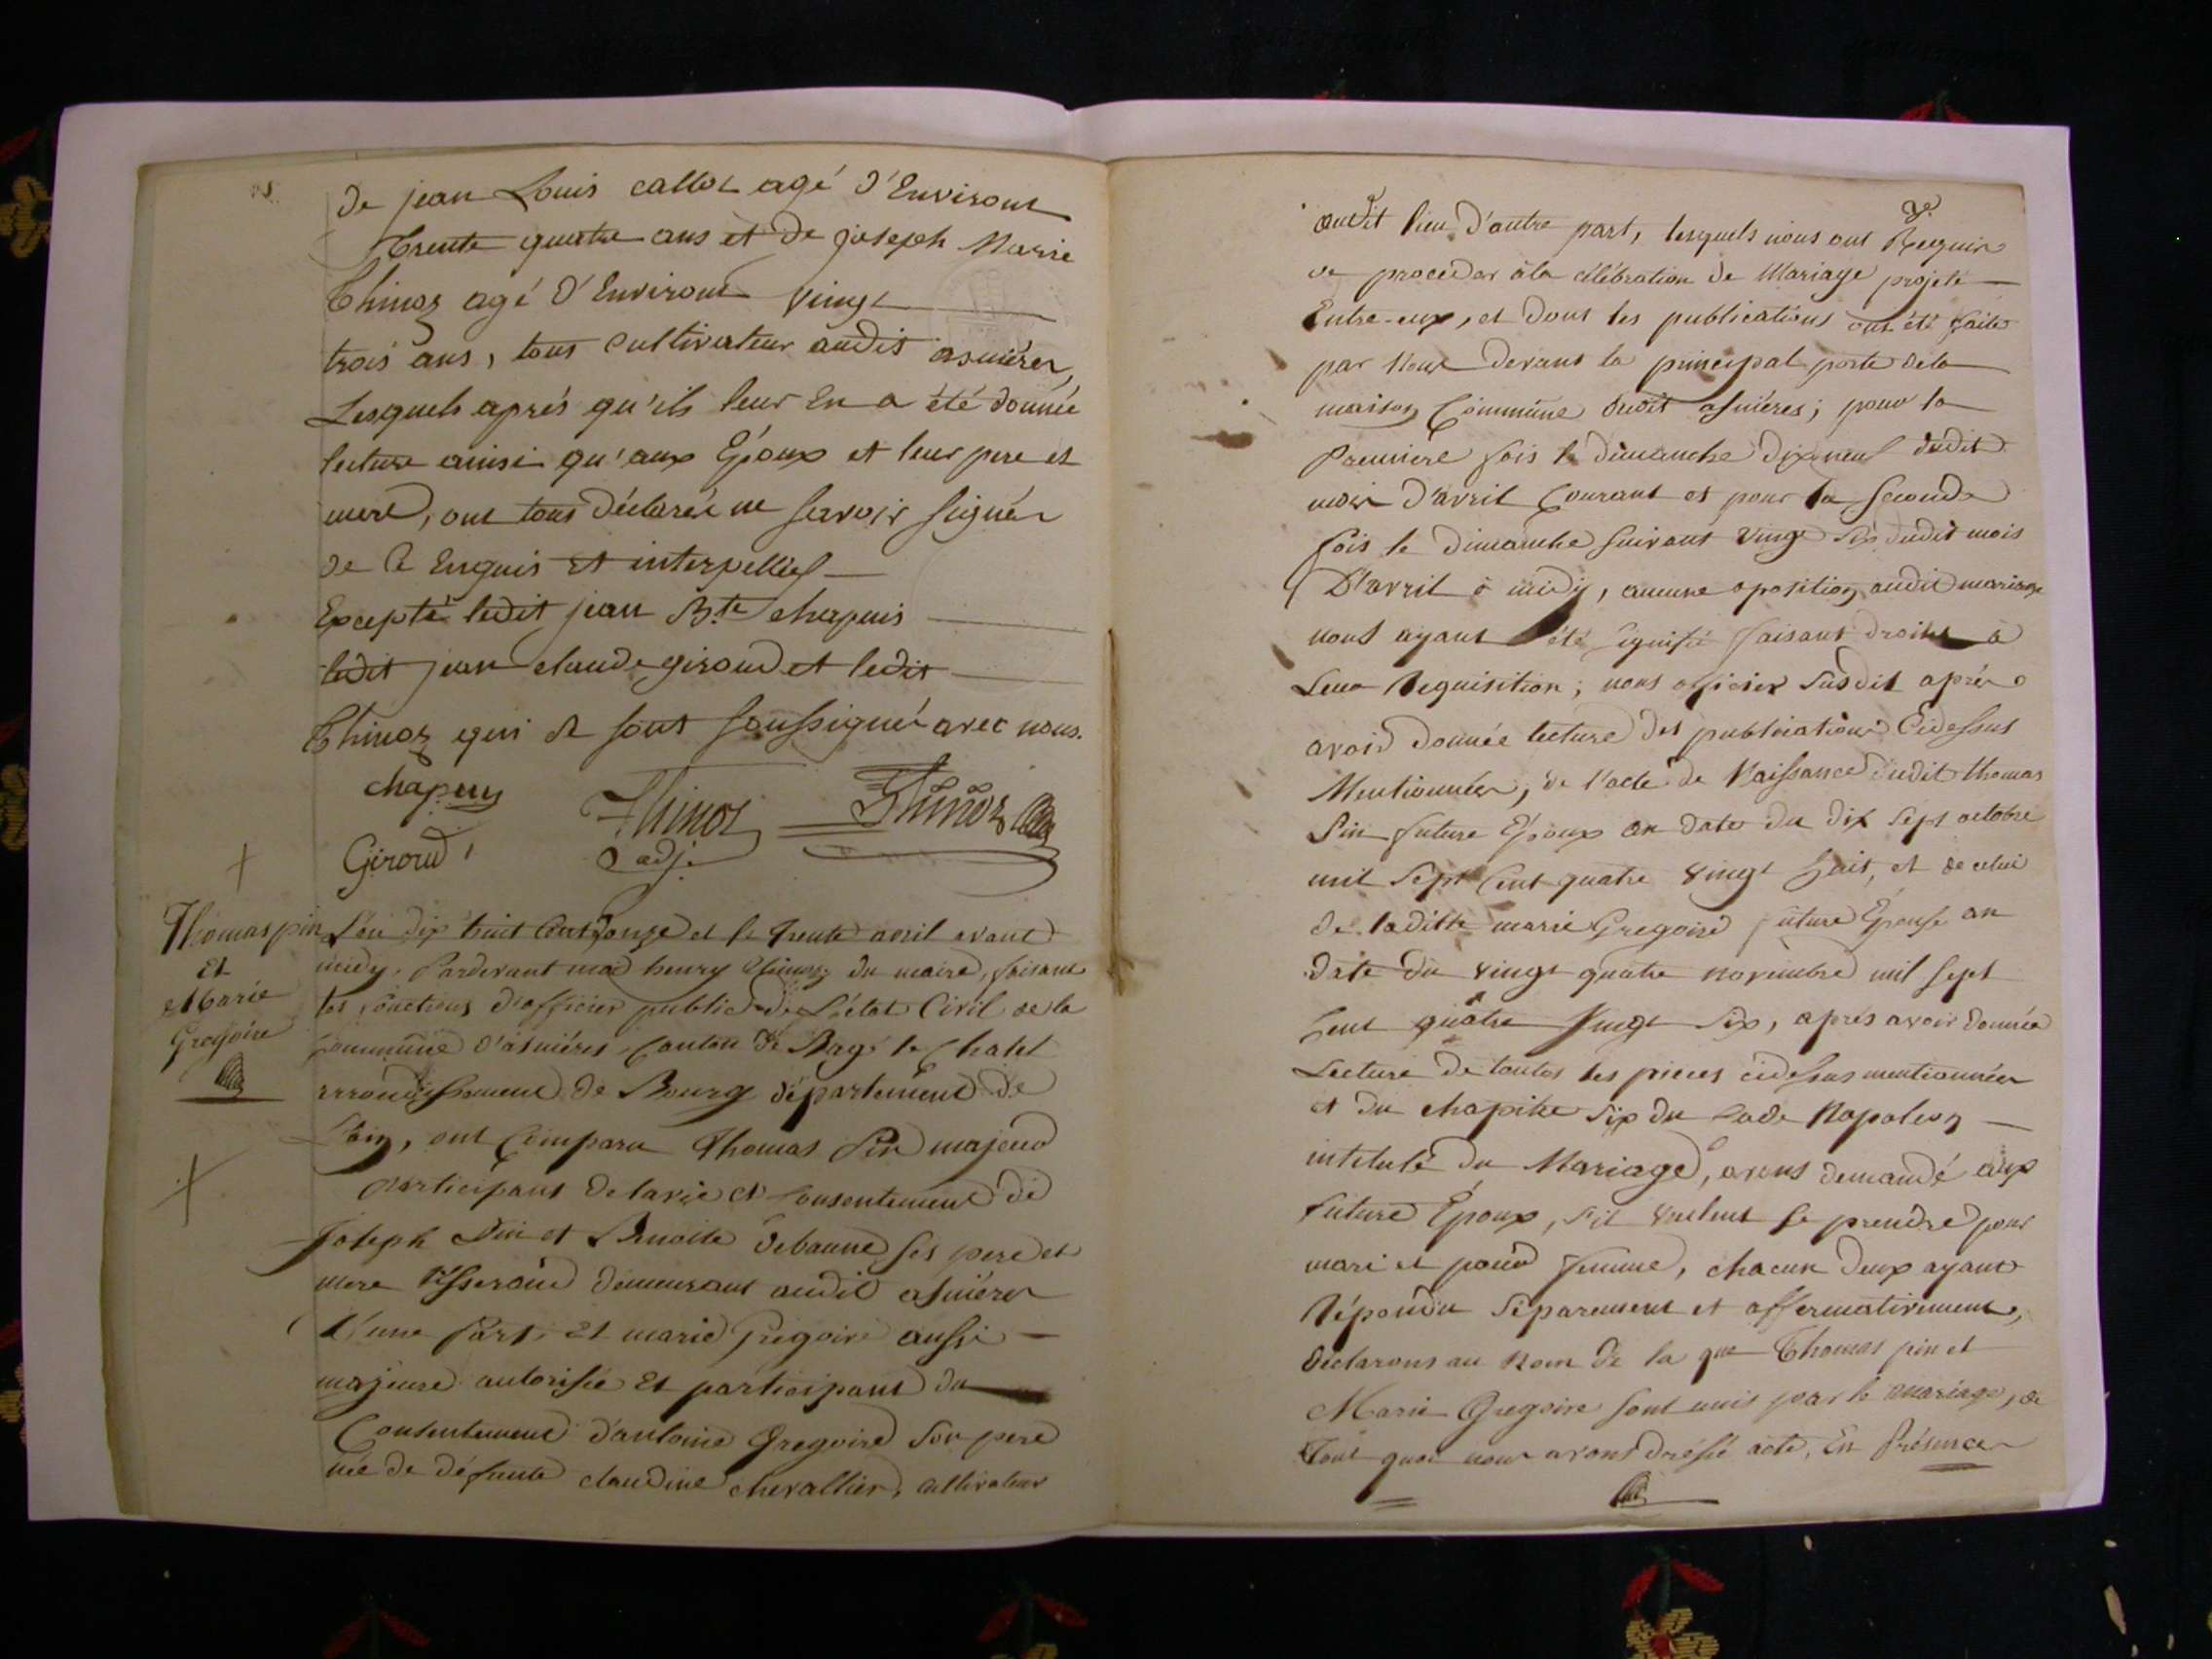 de jean Louis callot agé d'Environt
trente quatre ans et de joseph Marie
Thinoz agé d'Environt vingt
trois ans, tous cultivateur audit asnières,
Lesquels aprés qu'ils leur En a été donnée
lecture ainsi qu'aux Epoux et leur pere et
mere, ont tous déclarés ne Savoir Signér
de Ce Enquis et interpellés
Excepté ledit jean B.te chapuis
ledit jean claude giroud et ledit
Thinoz qui se sont soussigné avec nous.
chapuy Thinoz Thinoz
Giroud adj.
Thomas pin
Et
Marie
Gregoire
L'an dix huit Cent onze et le trente avril avant
midy, Pardevant moi henry thinoz du maire, faisant
les fonctions d'officier public de L'état Civil de la
Commune d'asniéres Canton de Bagé le Chatel
arrondissement de Bourg département de
L'ain, ont Comparu Thomas Pin majeur
participant de lavie et Consentement de
Joseph Pin et Benoite debanne ses pere et
mere tisserand demeurant audit asniéres
d'une part, et marie Gregoire aussi
majeure autorisée et participant du
Consentement d'antoine Gregoire Son pere
née de défunte claudine chevallier, cultivateur
audit lieu d'autre part, lesquels nous ont Requir
de proceder à la célébration de Mariage projeté
Entre-eux, et dont les publications ont été faite
par Nous devant la principal porte de la
maison Commune dudit asniéres; pour la
Premiere fois le dimanche dix neuf dudit
mois d'avril Courant et pour la Seconde
fois le dimanche suivant vingt six dudit mois
D'avril à midy, aucune oposition audit mariage
nous ayant été signifié faisant droite à
Leur Requisition; nous officier Susdit aprés
avoir donnée lecture des publications Cidessus
Mentionnées, de l'acte de Naissance dudit thomas
Pin future Epoux en date du dix Sept octobre
mil Sept Cent quatre vingt huit, et de celui
de laditte marie Gregoire future Epouse en
date du vingt quatre novembre mil sept
Cent quatre vingt six, aprés avoir donnée
Lecture de toutes les pieces cidessus mentionnées
et du chapitre six du Code Napoleon
intitulé du Mariage, avons demandé aux
future Epoux, s'il veulent se prendre pour
mari et pour femme, chacun deux ayant
Répondu Séparement et affermativement,
déclarons au Nom de la que Thomas pin et
Marie Gregoire sont unis par le mariage, de
tout quoi nous avons dréssé acte, En Présence